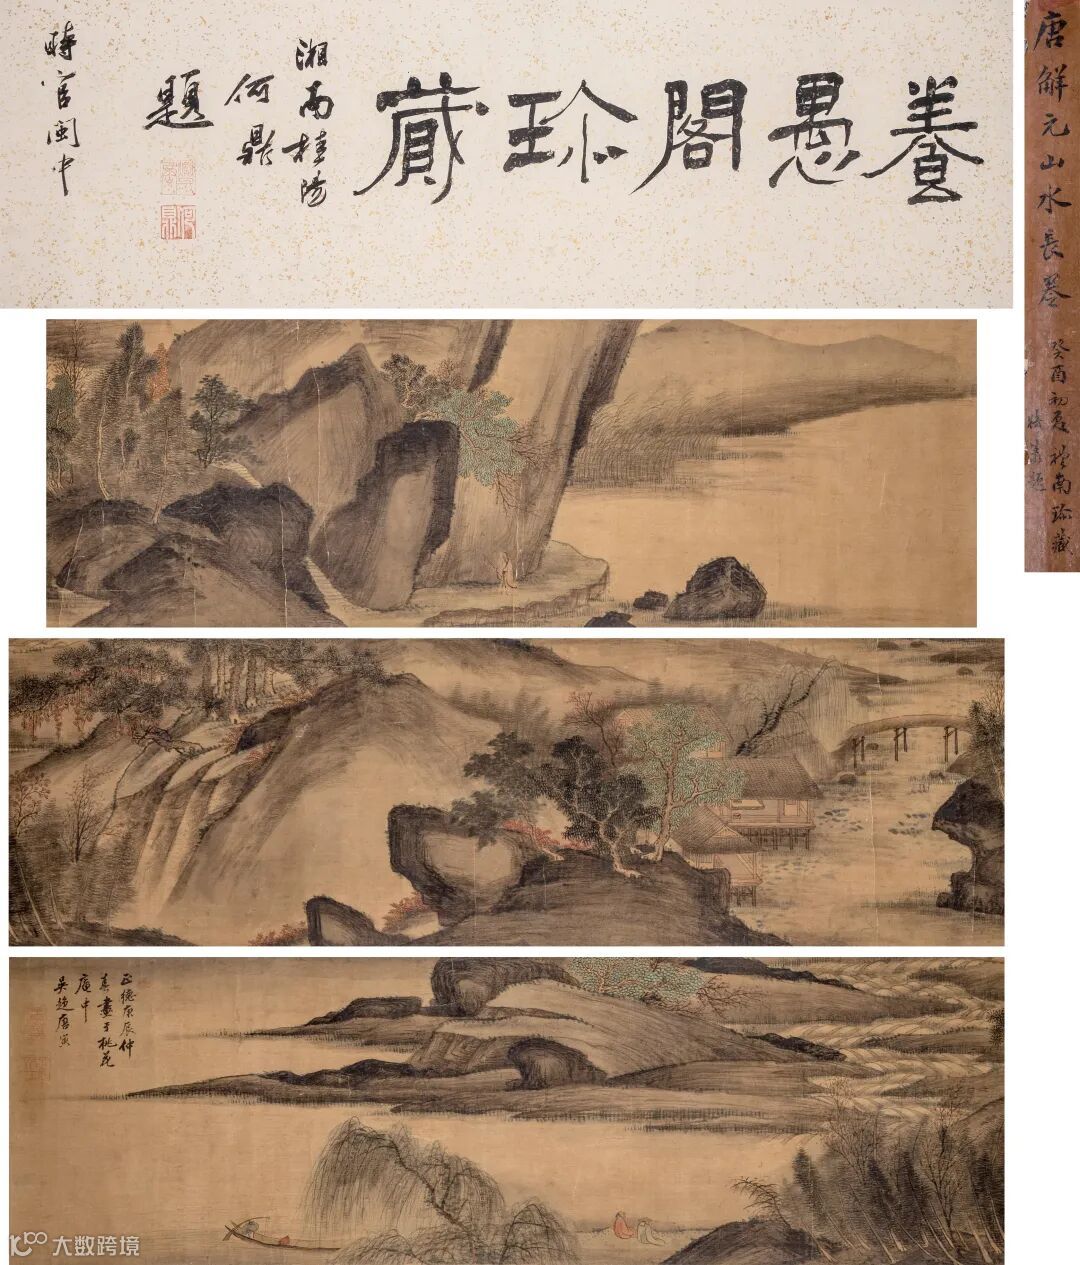 養愚閣珍藏
湘南桂陽
何鼎
題
時官閩中
唐解元山水長卷
癸酉初夏 南珍藏
題
正德庚辰仲
春畫于桃花
庵中
吳趨唐寅
大数跨境